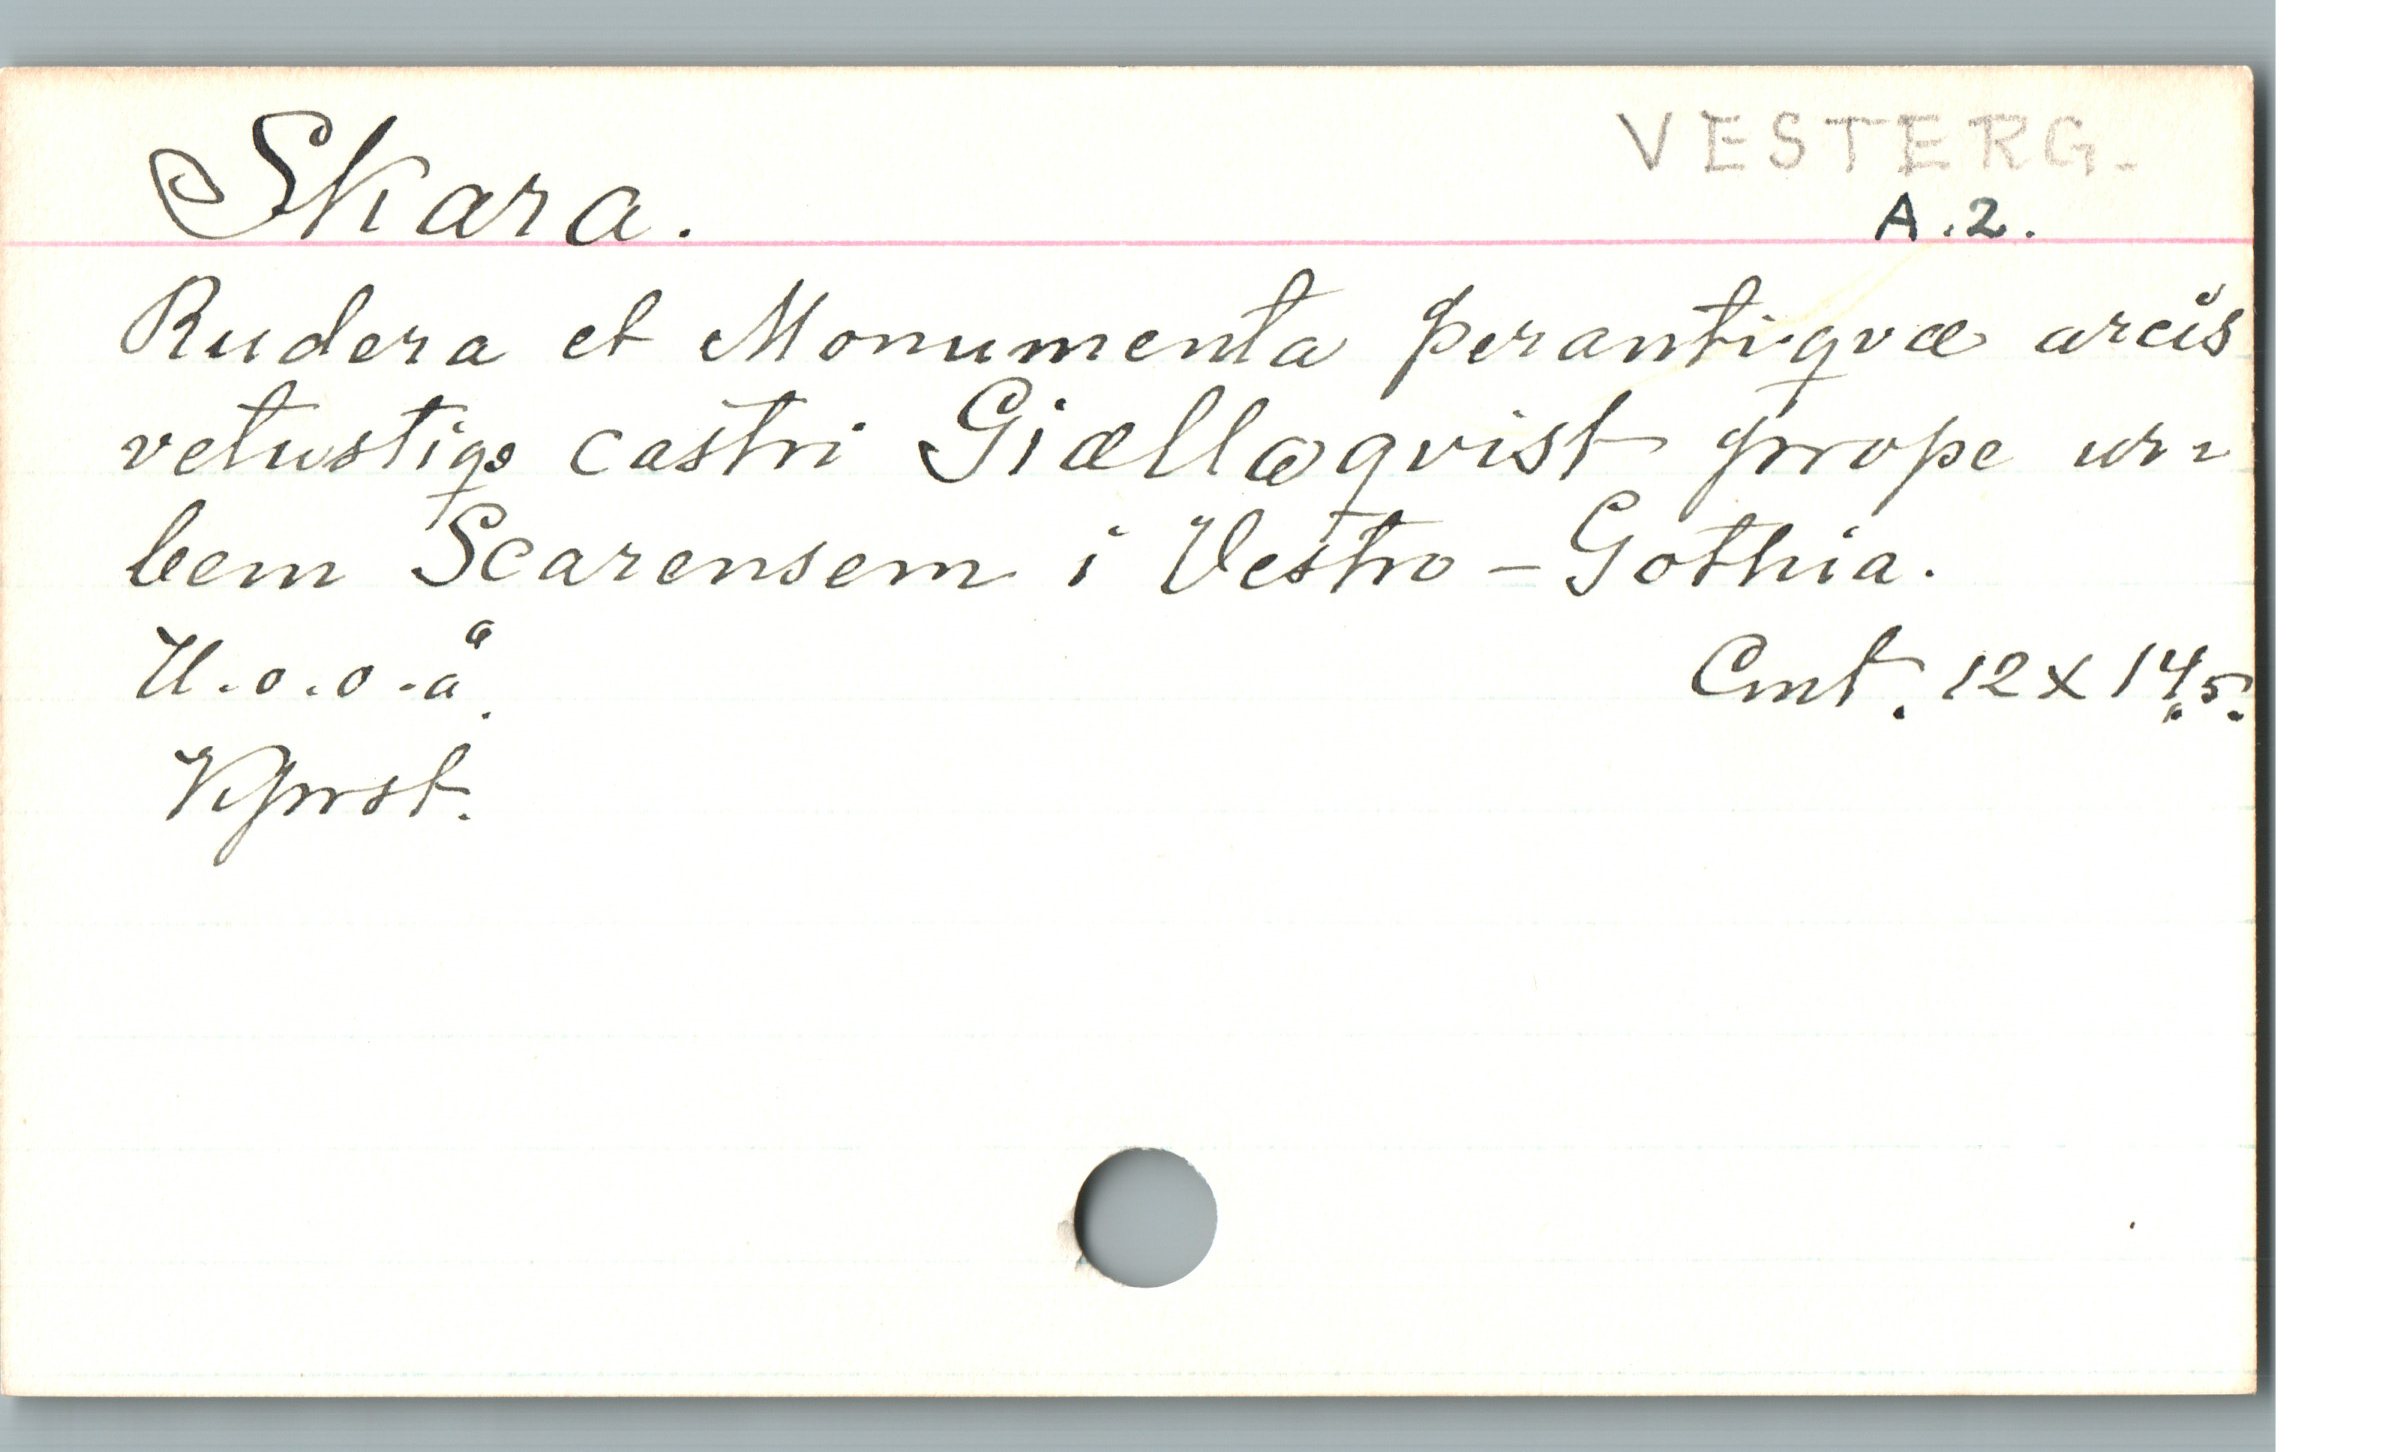 Skara.
VESTERG.
A.2.
Rudera et Monumenta perantiqvæ arcis
vetustiqs castri Giællaqvist prope ur=
bem Scarensem i Vestro-Gothia.
U.o.o.å.
Cmt. 12 x 14,5.
Kprst.